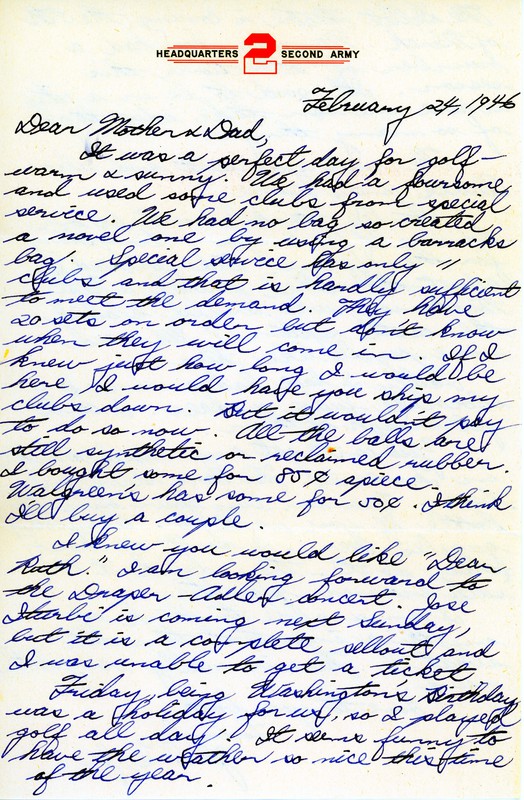 HEADQUARTERS 2 SECOND ARMY
February 24, 1946
Dear Mother & Dad,
It was a perfect day for golf -
warm & sunny. We had a foursome
and used some clubs from special
service. We had no bag so created
a novel one by using a barracks
bag. Special service has only 11
clubs and that is hardly sufficient
to meet the demand. They have
20 sets on order but don't know
when they will come in. If I
knew just how long I would be
here I would have you ship my
clubs down. But it wouldn't pay
to do so now. All the balls are
still synthetic or reclaimed rubber.
I bought some for 85¢ apiece.
Walgreen's has some for 50¢. I think
I'll buy a couple.
I knew you would like "Dear
Ruth." I am looking forward to
the Draper Adler concert. Jose
Iturbi is coming next Sunday,
but it is a complete sellout and
I was unable to get a ticket
Friday, being Washingtons Birthday
was a holiday for us, so I played
golf all day. It seems funny to
have the weather so nice this time
of the year.